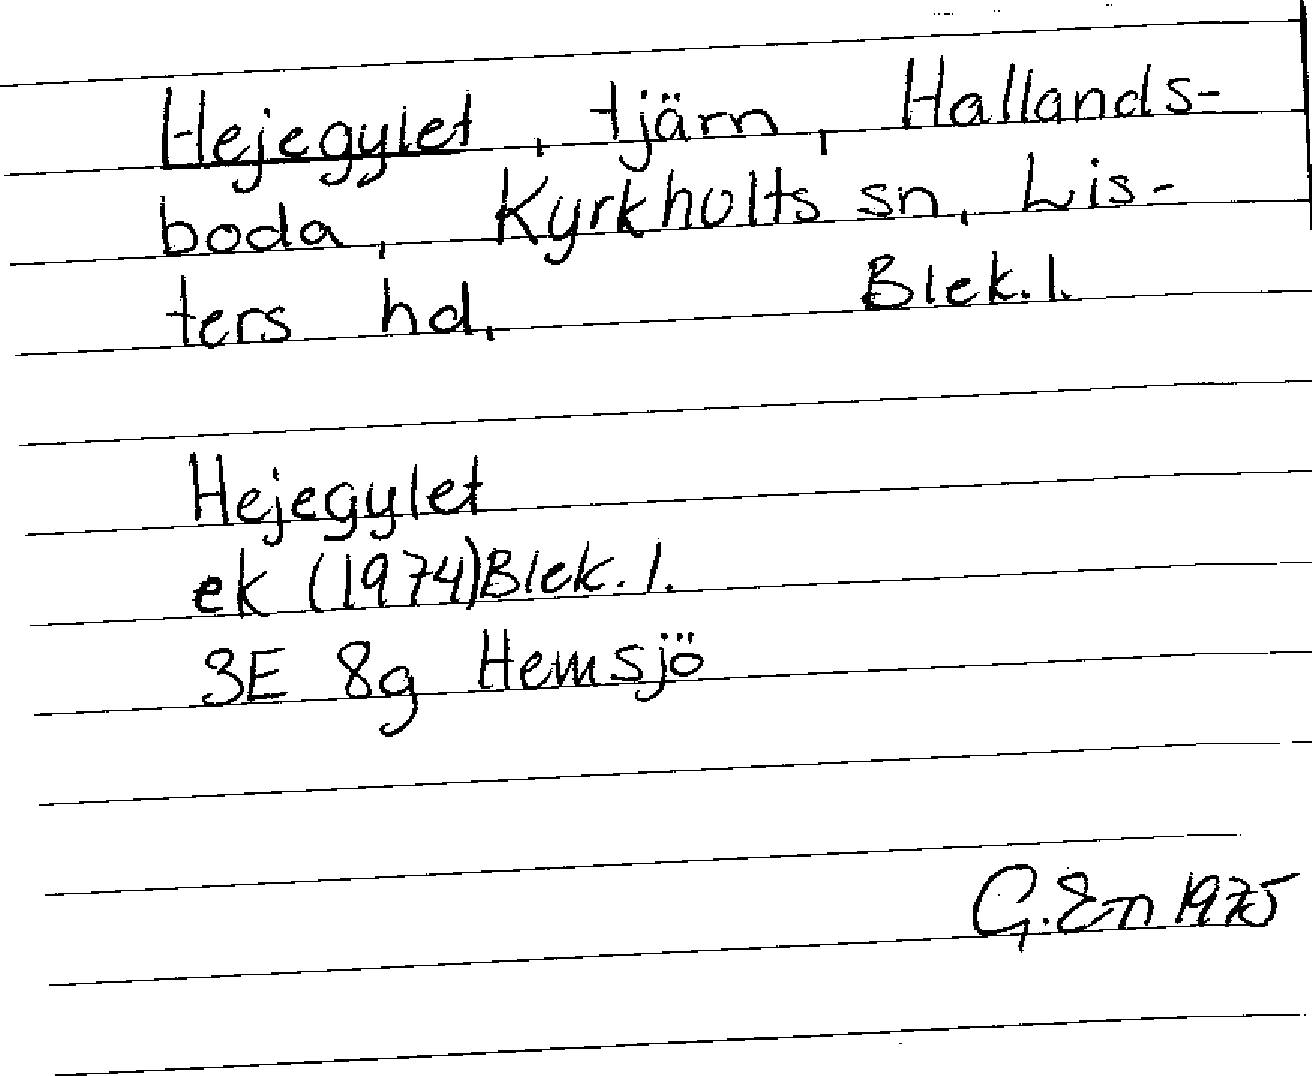 Hejegylet, tjärn, Hallands-
boda, Kyrkhults sn, Lis-
ters hd. Blek.l.
Hejegylet
ek (1974) Blek.l.
3E 8g Hemsjö
G. En 1975